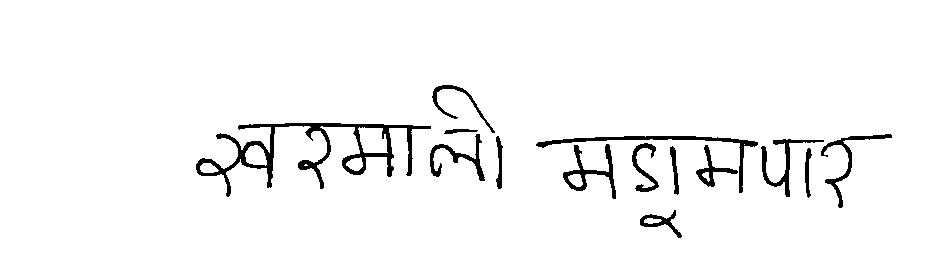 खरमाली मडूमपार